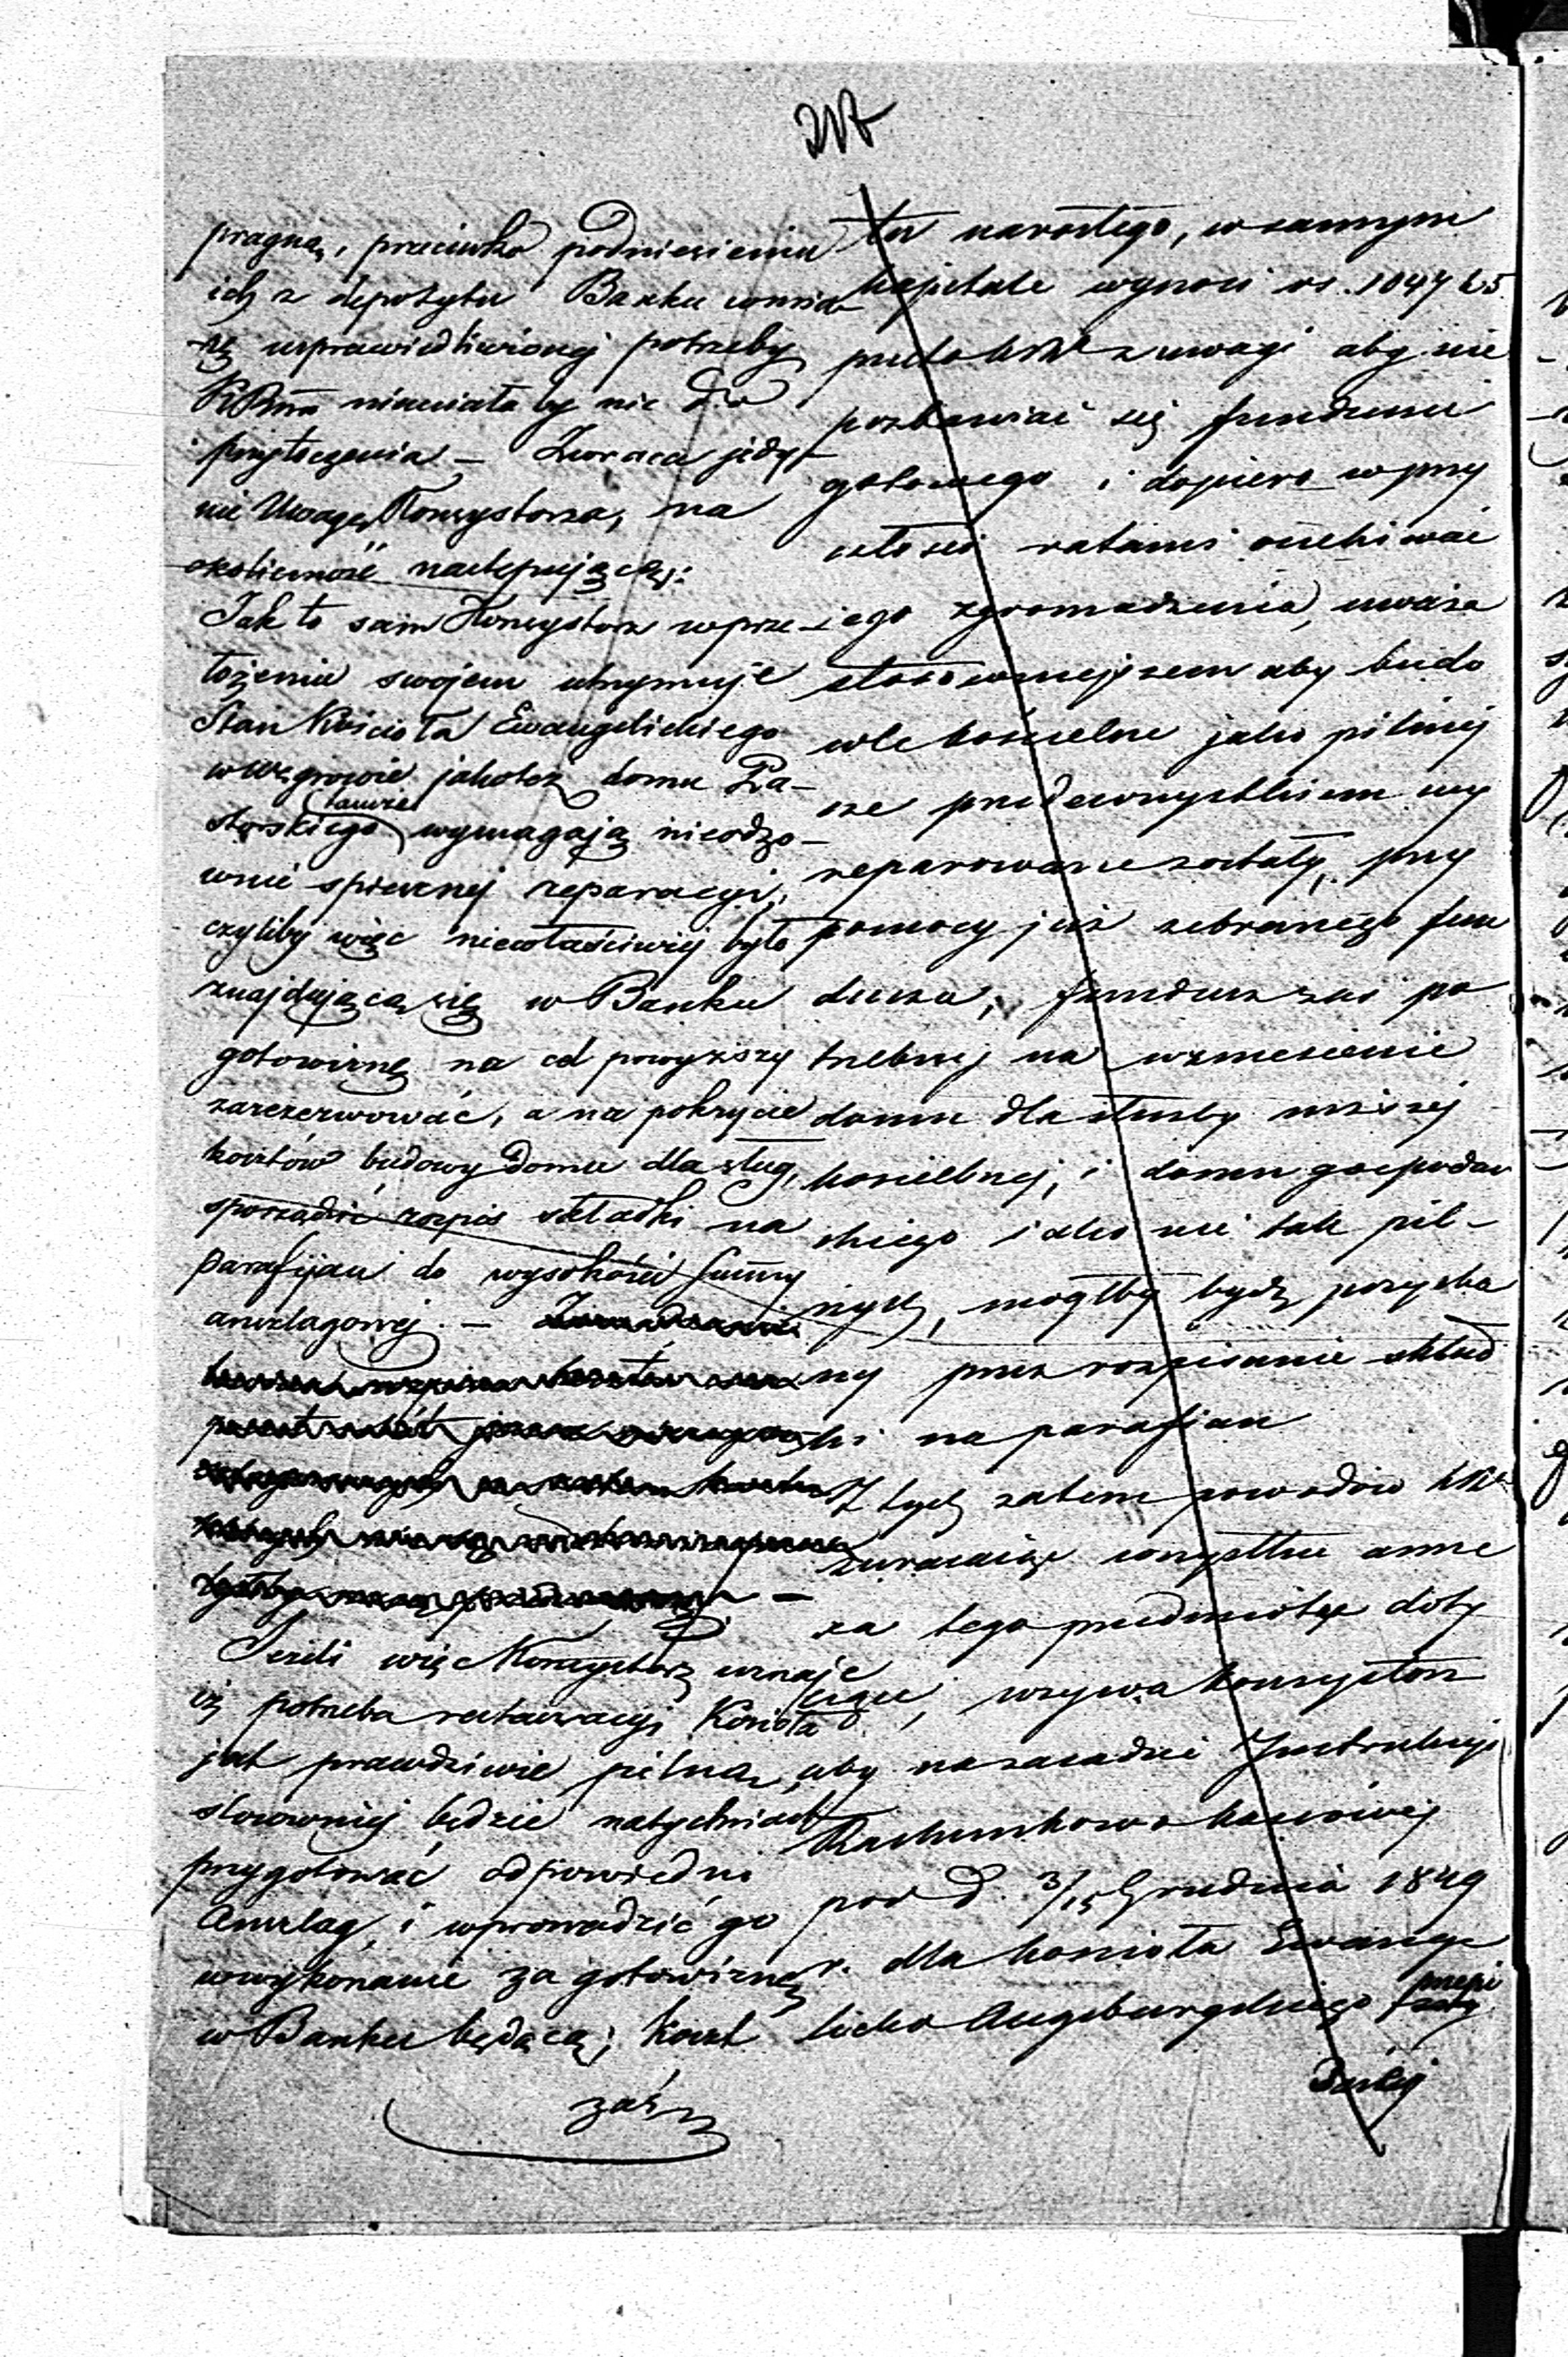 pragną, przeciwko podniesieniu
ich z depozytu Banku w miarę
uprawiedliwionej potrzeby
KRM niemiałaby nic do
przytoczenia – Zwraca jedy-
nie Uwagę Konsystorza, na
okoliczność następującą:
Jak to sam Konsystorz w prze-
łożeniu swojem utrzymuje
Stan Kościoła Ewangelickiego
w Węgrowie jakoteż domu Pa-
storskiego tamże wymagają nieodzo-
wnie spiesznej reparacyi,
czyliby więc niewłaściwiej było
znajdującą się w Banku
gotowiznę na cel powyższy
zarezerwować, a na pokrycie
kosztów budowy domu dla sług,
sporządzić rozpis składki na
parafijan do wysokości summy
anszlagowej. –
Jeżeli więc Konsystorz uznaje
iż potrzeba restauracyi Kościoła
jest prawdziwie pilną,
stosowniej będzie natychmiast
przygotować odpowiedni
Anszlag, i wprowadzić go
w wykonanie za gotowiznę
w Banku będącą; koszt
zaś
tu narosłego, w samym
kapitale wynosi rs. 1044 k 5
z uwagi aby nie
pozbawiać się funduszu
gotowego i dopiero w przy
szłości ratami oczekiwać
jego zgromadzenia, uważa
stosowniejszem aby budo
wle kościelne jako pilniej
sze przedewszystkiem wy
reparowane zostały, przy
pomocy już zebranego fun
duszu, fundusz zaś po
trzebny na wzniesienie
domu dla służby niższej
kościelnej, i domu gospodar
skiego jako nie tak pil-
nych, mógłby bydź pozyska
ny przez rozpisanie skład
ki na parafian
Z tych zatem powodów KR
zwracając wszystkie anne
xa tego przedmiotu doty
czące, wzywa Konsystorz
aby na zasadzie Instrukcyi
Rachunkowo kassowej
pod d. 3/15 Grudnia 1849
r. dla kościoła Ewange
licko Augsburgskiego przepi